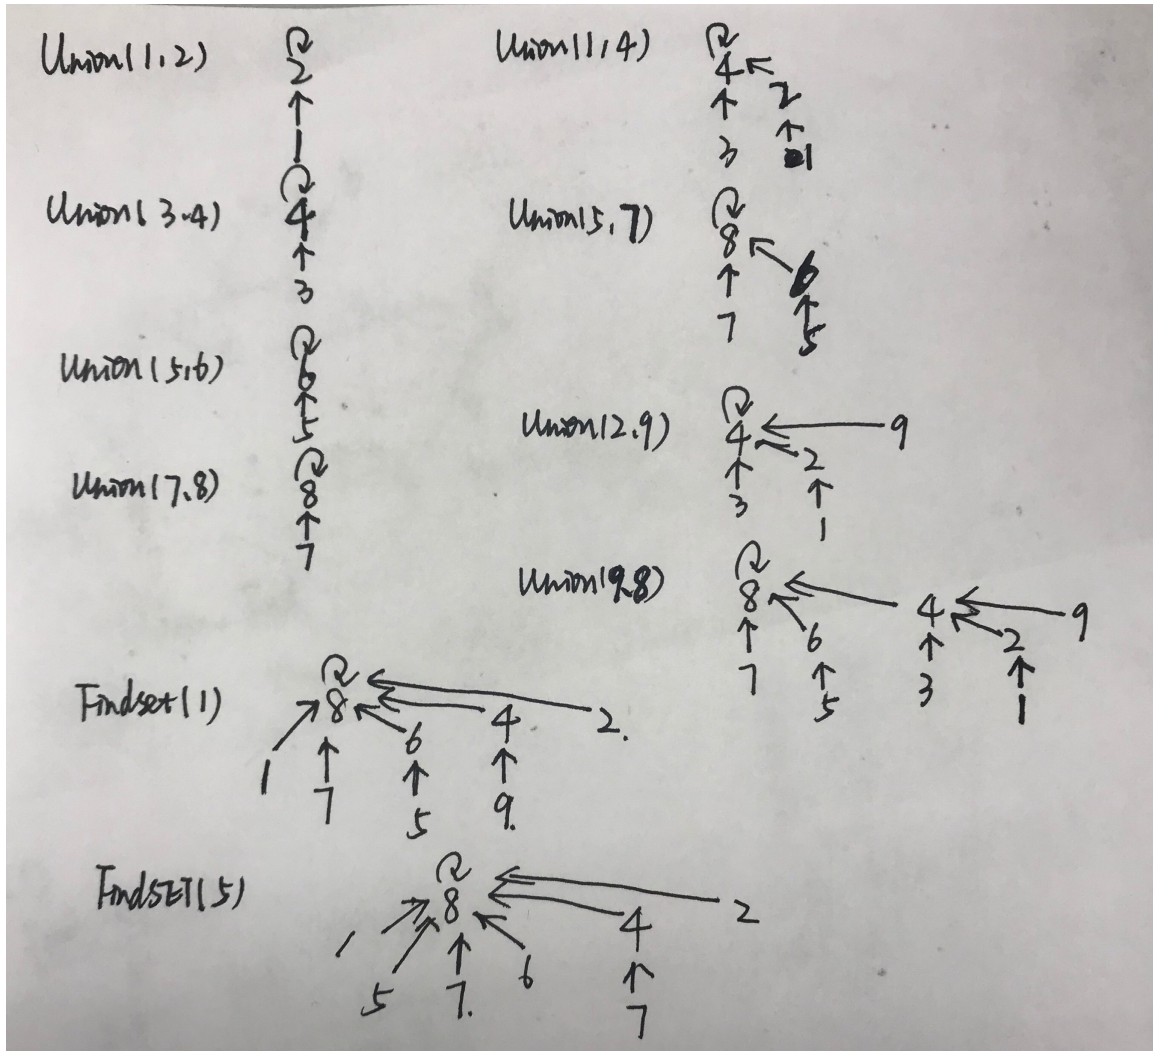 Union(1,2)
2
1
Union(3.4)
4
3
Union(5,6)
6
5
Union(7,8)
8
7
Union(1,4)
4
2
3
1
Union(5,7)
8
6
7
5
Union(2,9)
4 9
2
3
1
Union(9,8)
8 4 9
6 2
7 3
5 1
Findset(1)
8 4 2.
6
1 7
5 9.
FindSET(5)
8 4 2
1
5 7. 6
7